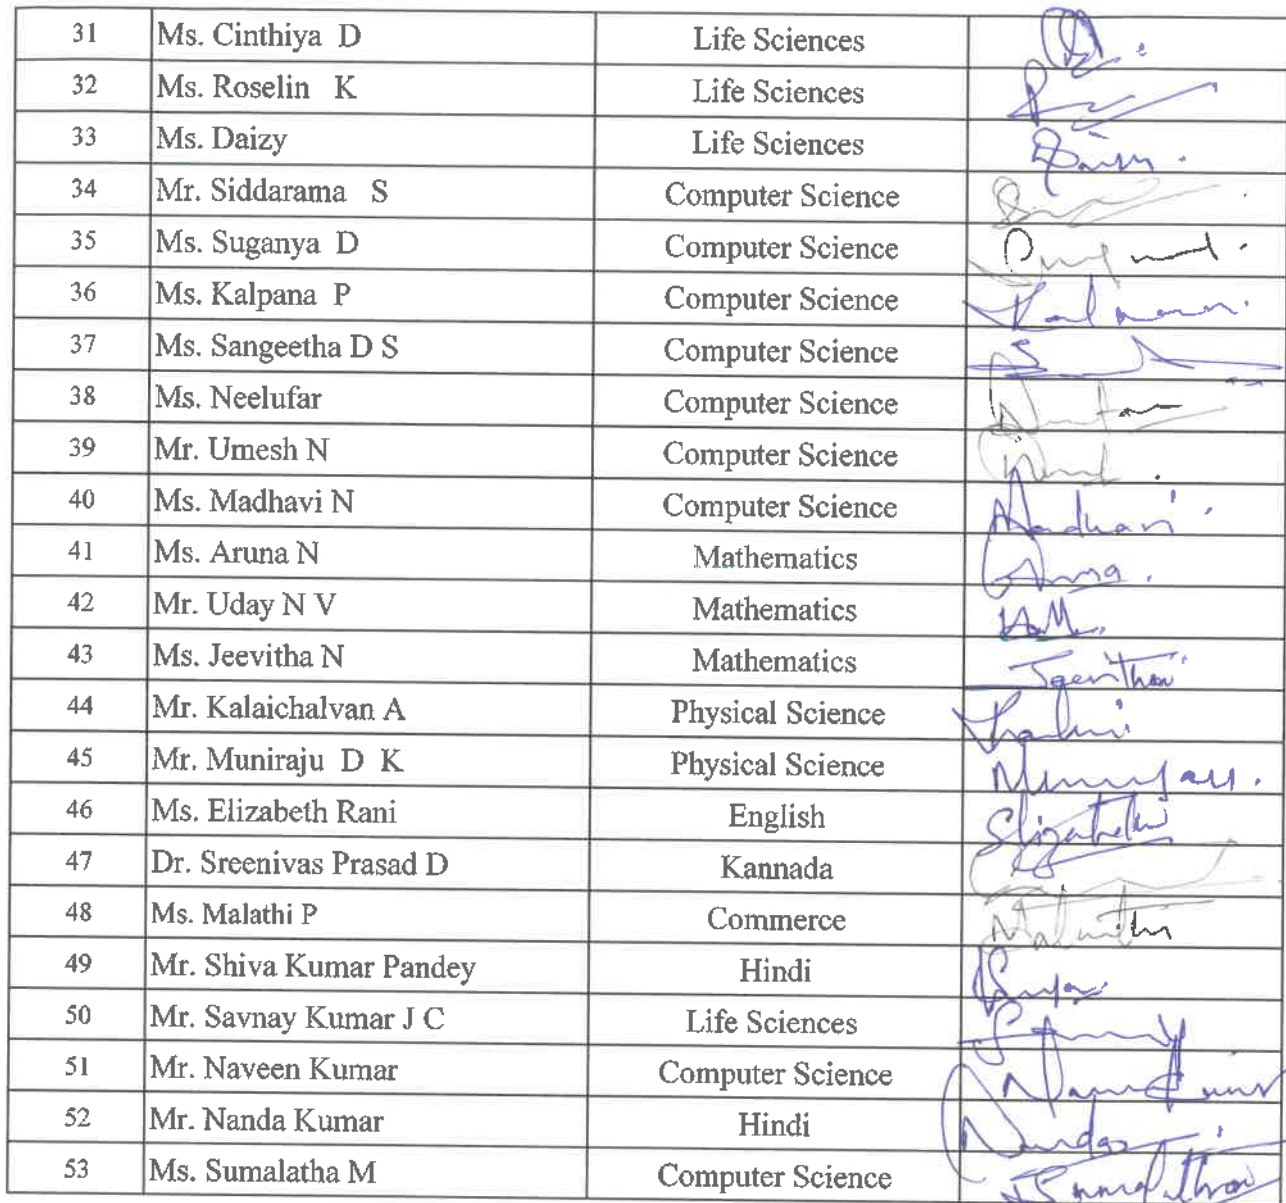 31 Ms. Cinthiya D Life Sciences
32 Ms. Roselin K Life Sciences
33 Ms. Daizy Life Sciences
34 Mr. Siddarama S Computer Science
35 Ms. Suganya D Computer Science
36 Ms. Kalpana P Computer Science
37 Ms. Sangeetha D S Computer Science
38 Ms. Neelufar Computer Science
39 Mr. Umesh N Computer Science
40 Ms. Madhavi N Computer Science Madhavi
41 Ms. Aruna N Mathematics
42 Mr. Uday N V Mathematics
43 Ms. Jeevitha N Mathematics
44 Mr. Kalaichalvan A Physical Science
45 Mr. Muniraju D K Physical Science
46 Ms. Elizabeth Rani English
47 Dr. Sreenivas Prasad D Kannada
48 Ms. Malathi P Commerce
49 Mr. Shiva Kumar Pandey Hindi
50 Mr. Savnay Kumar J C Life Sciences
51 Mr. Naveen Kumar Computer Science
52 Mr. Nanda Kumar Hindi
53 Ms. Sumalatha M Computer Science